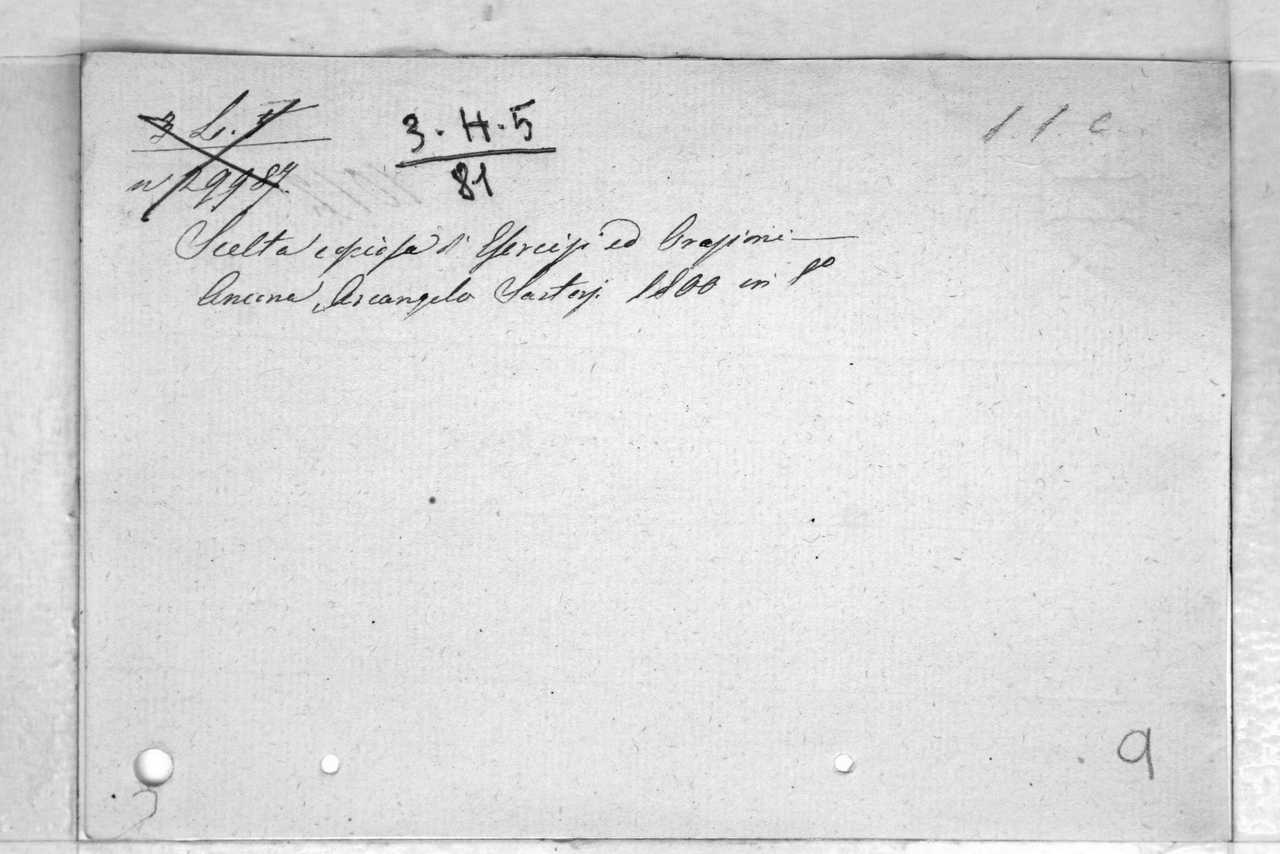 3 L. V
nº 29987
3. H. 5
81
Scelta copiosa di Esercizi ed Orazioni —
Ancona, Arcangelo Sartorj. 1800 in 8º
9